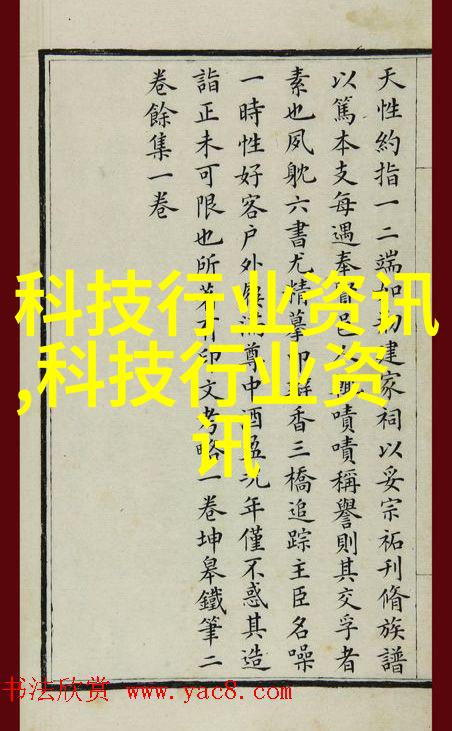 天性約指一二端如建家祠以妥宗祏刊脩族譜
以篤本支每遇奉嘖嘖稱譽則其交孚者
素也夙躭六書尤精摹香三橋追踪主臣名噪
一時性好客户外尊中酒盈況年僅不惑其造
詣正未可限也所著有印文考略一卷坤皋鐵筆二
卷餘集一卷
科技行业资讯
,科技行业资
讯
书法欣赏 www.yac8.com